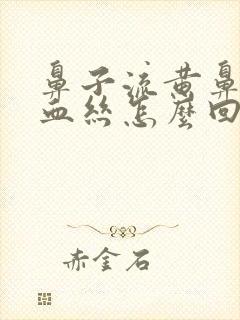 鼻子流黄鼻
血丝怎麼回
赤金石